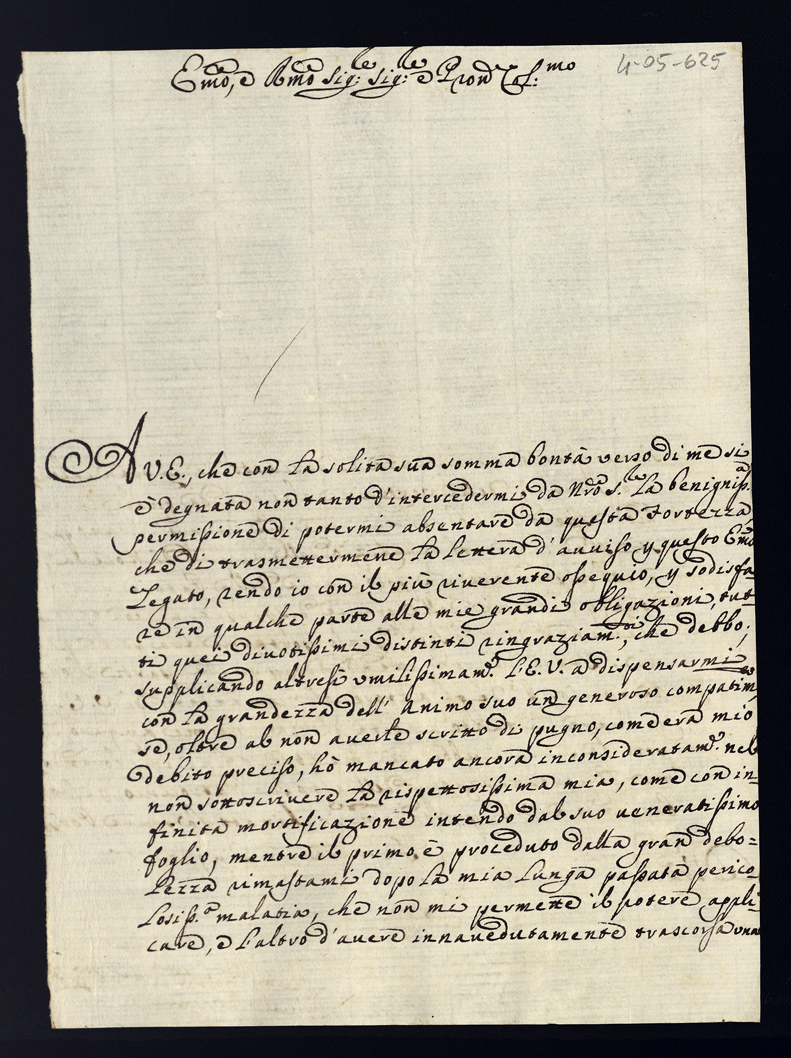 Emo, e Rmo Sig:re Sig:re e Pron Col:mo
4-05-625
A V.E., che con la solita sua somma bontà verso di me si
è degnata non tanto d'intercedermi da Nrõ S.re la benigniss.a
permissione di potermi absentare da questa Fortezza
che di trasmettermene la lettera d'avviso p questo Emo
Legato, rendo io con il più riverente ossequio, p sodisfa
re in qualche parte alle mie grandi obligazioni, tut-
ti quei divotissimi distinti ringraziam.ti, che debbo;
supplicando altresì umilissimam.e l'E.V. a dispensarmi
con la grandezza dell'animo suo un generoso compatim.to
se, oltre al non averle scritto di pugno, com'era mio
debito preciso, hò mancato ancora inconsideratam.e nel
non sottoscrivere la rispettosissima mia, come con in-
finita mortificazione intendo dal suo veneratissimo
foglio, mentre il primo è proceduto dalla gran debo=
lezza rimastami dopo la mia lunga passata perico
losiss.a malatia, che non mi permette il potere appli
care, e l'altro d'avere innavedutamente trascorsa una